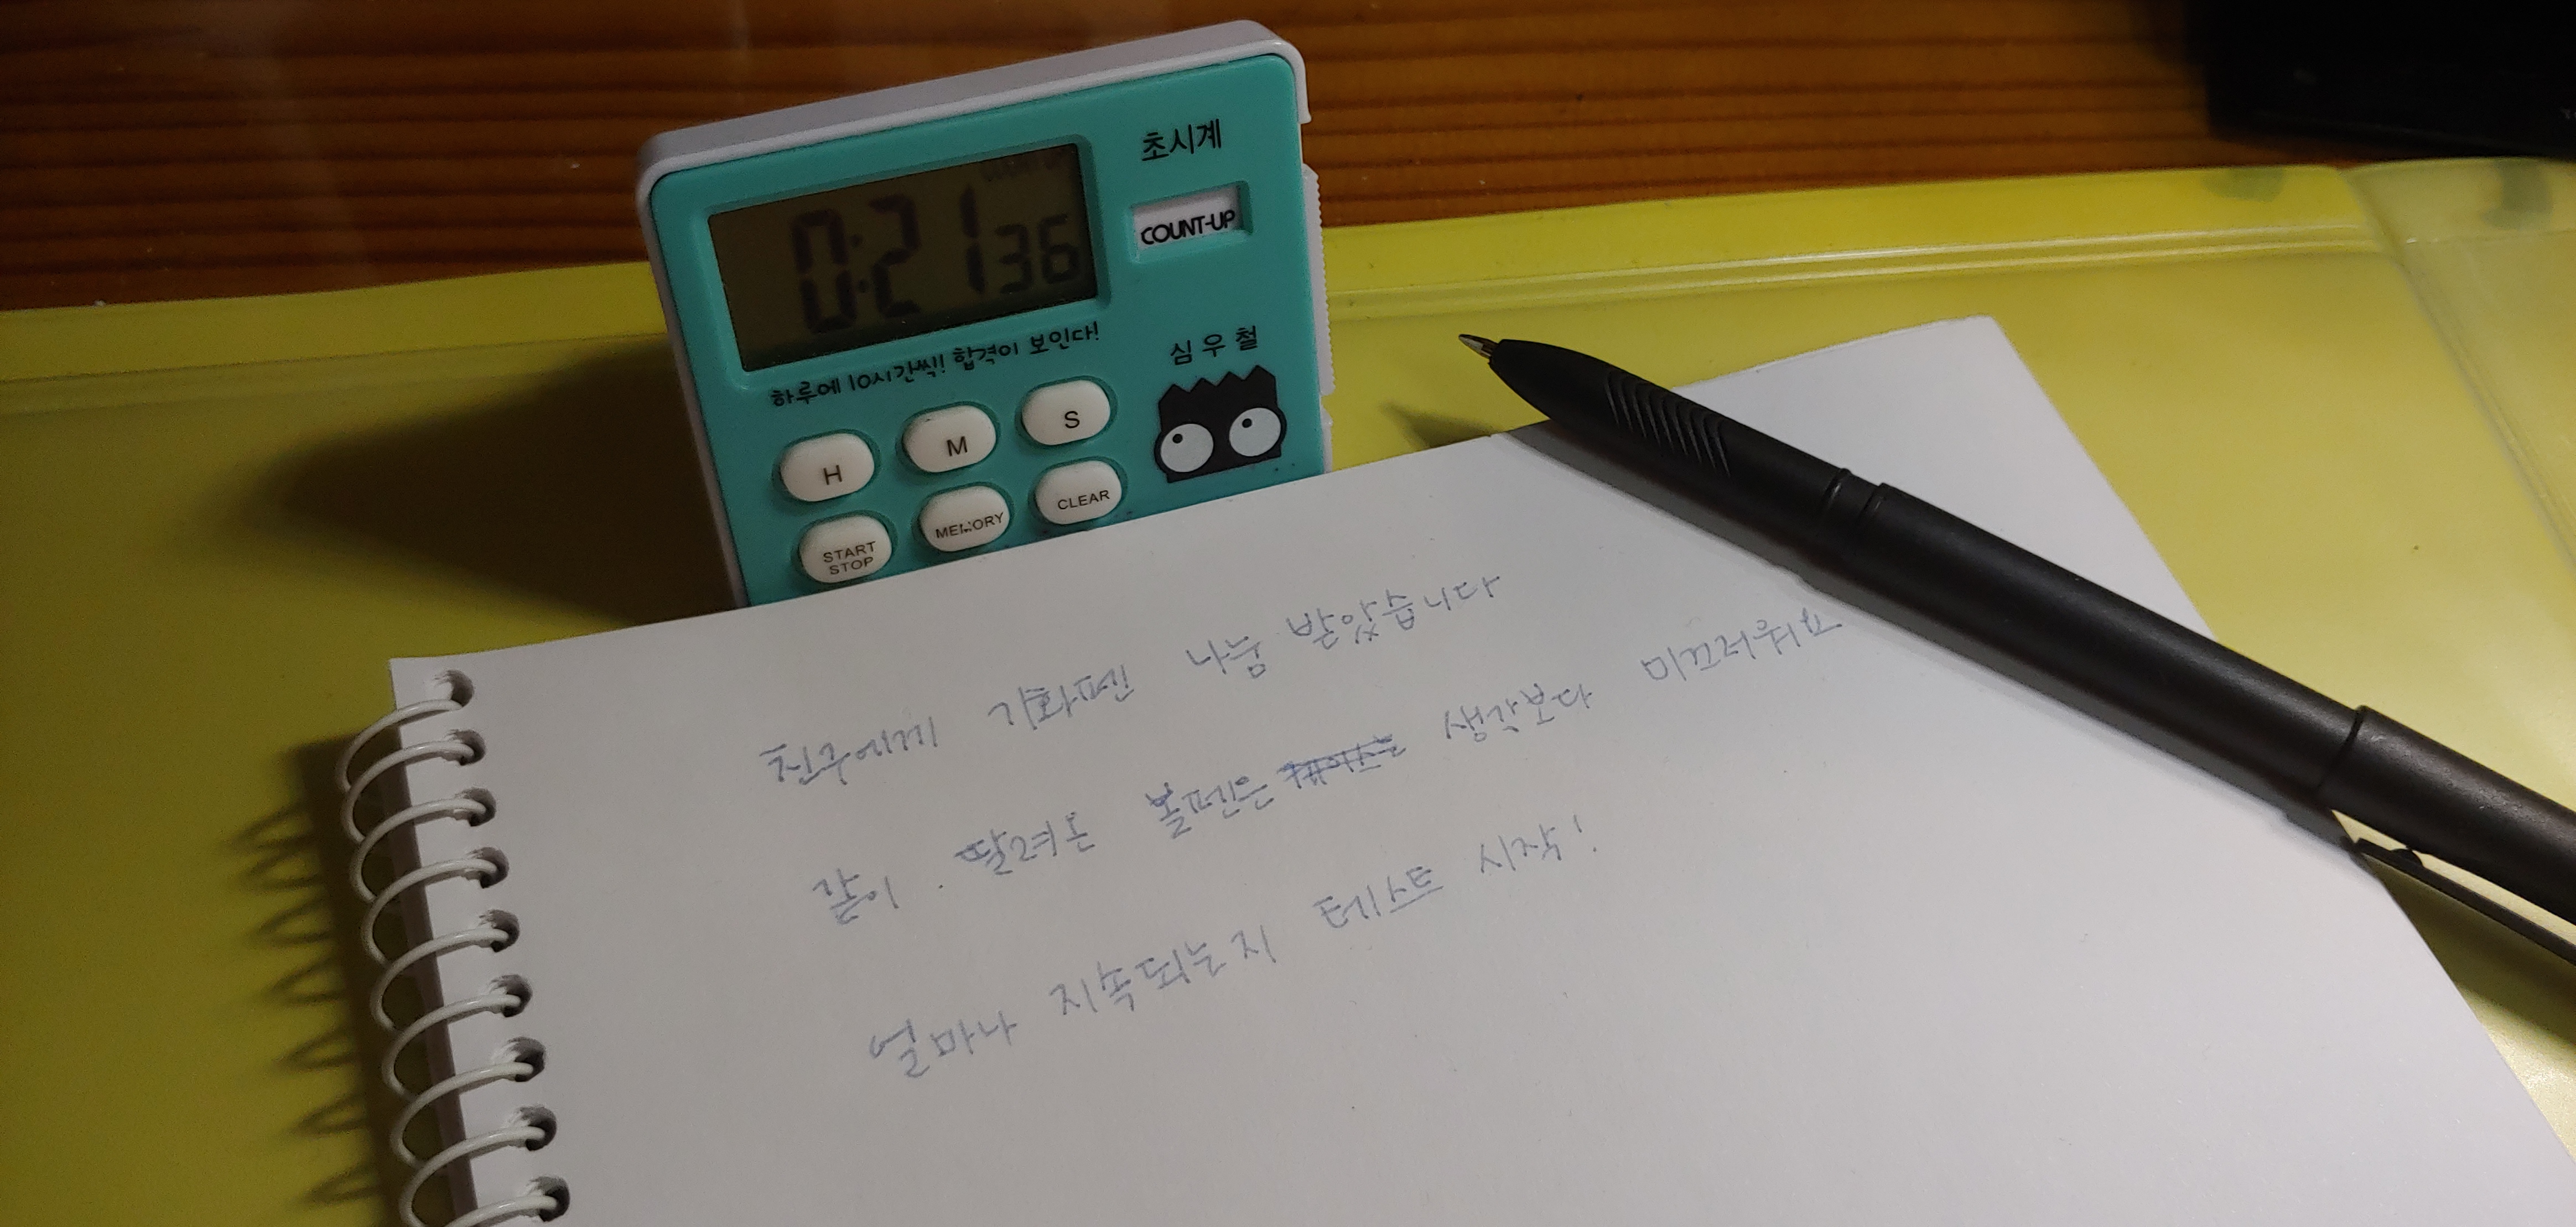 초시계
COUNT-UP
0:21 36
하루에 10시간씩! 합격이 보인다!
심우철
H M S
START STOP MEMORY CLEAR
친구에게 기화펜 나눔 받았습니다
같이 딸려온 볼펜은 생각보다 미끄러워
얼마나 지속되는지 테스트 시작!